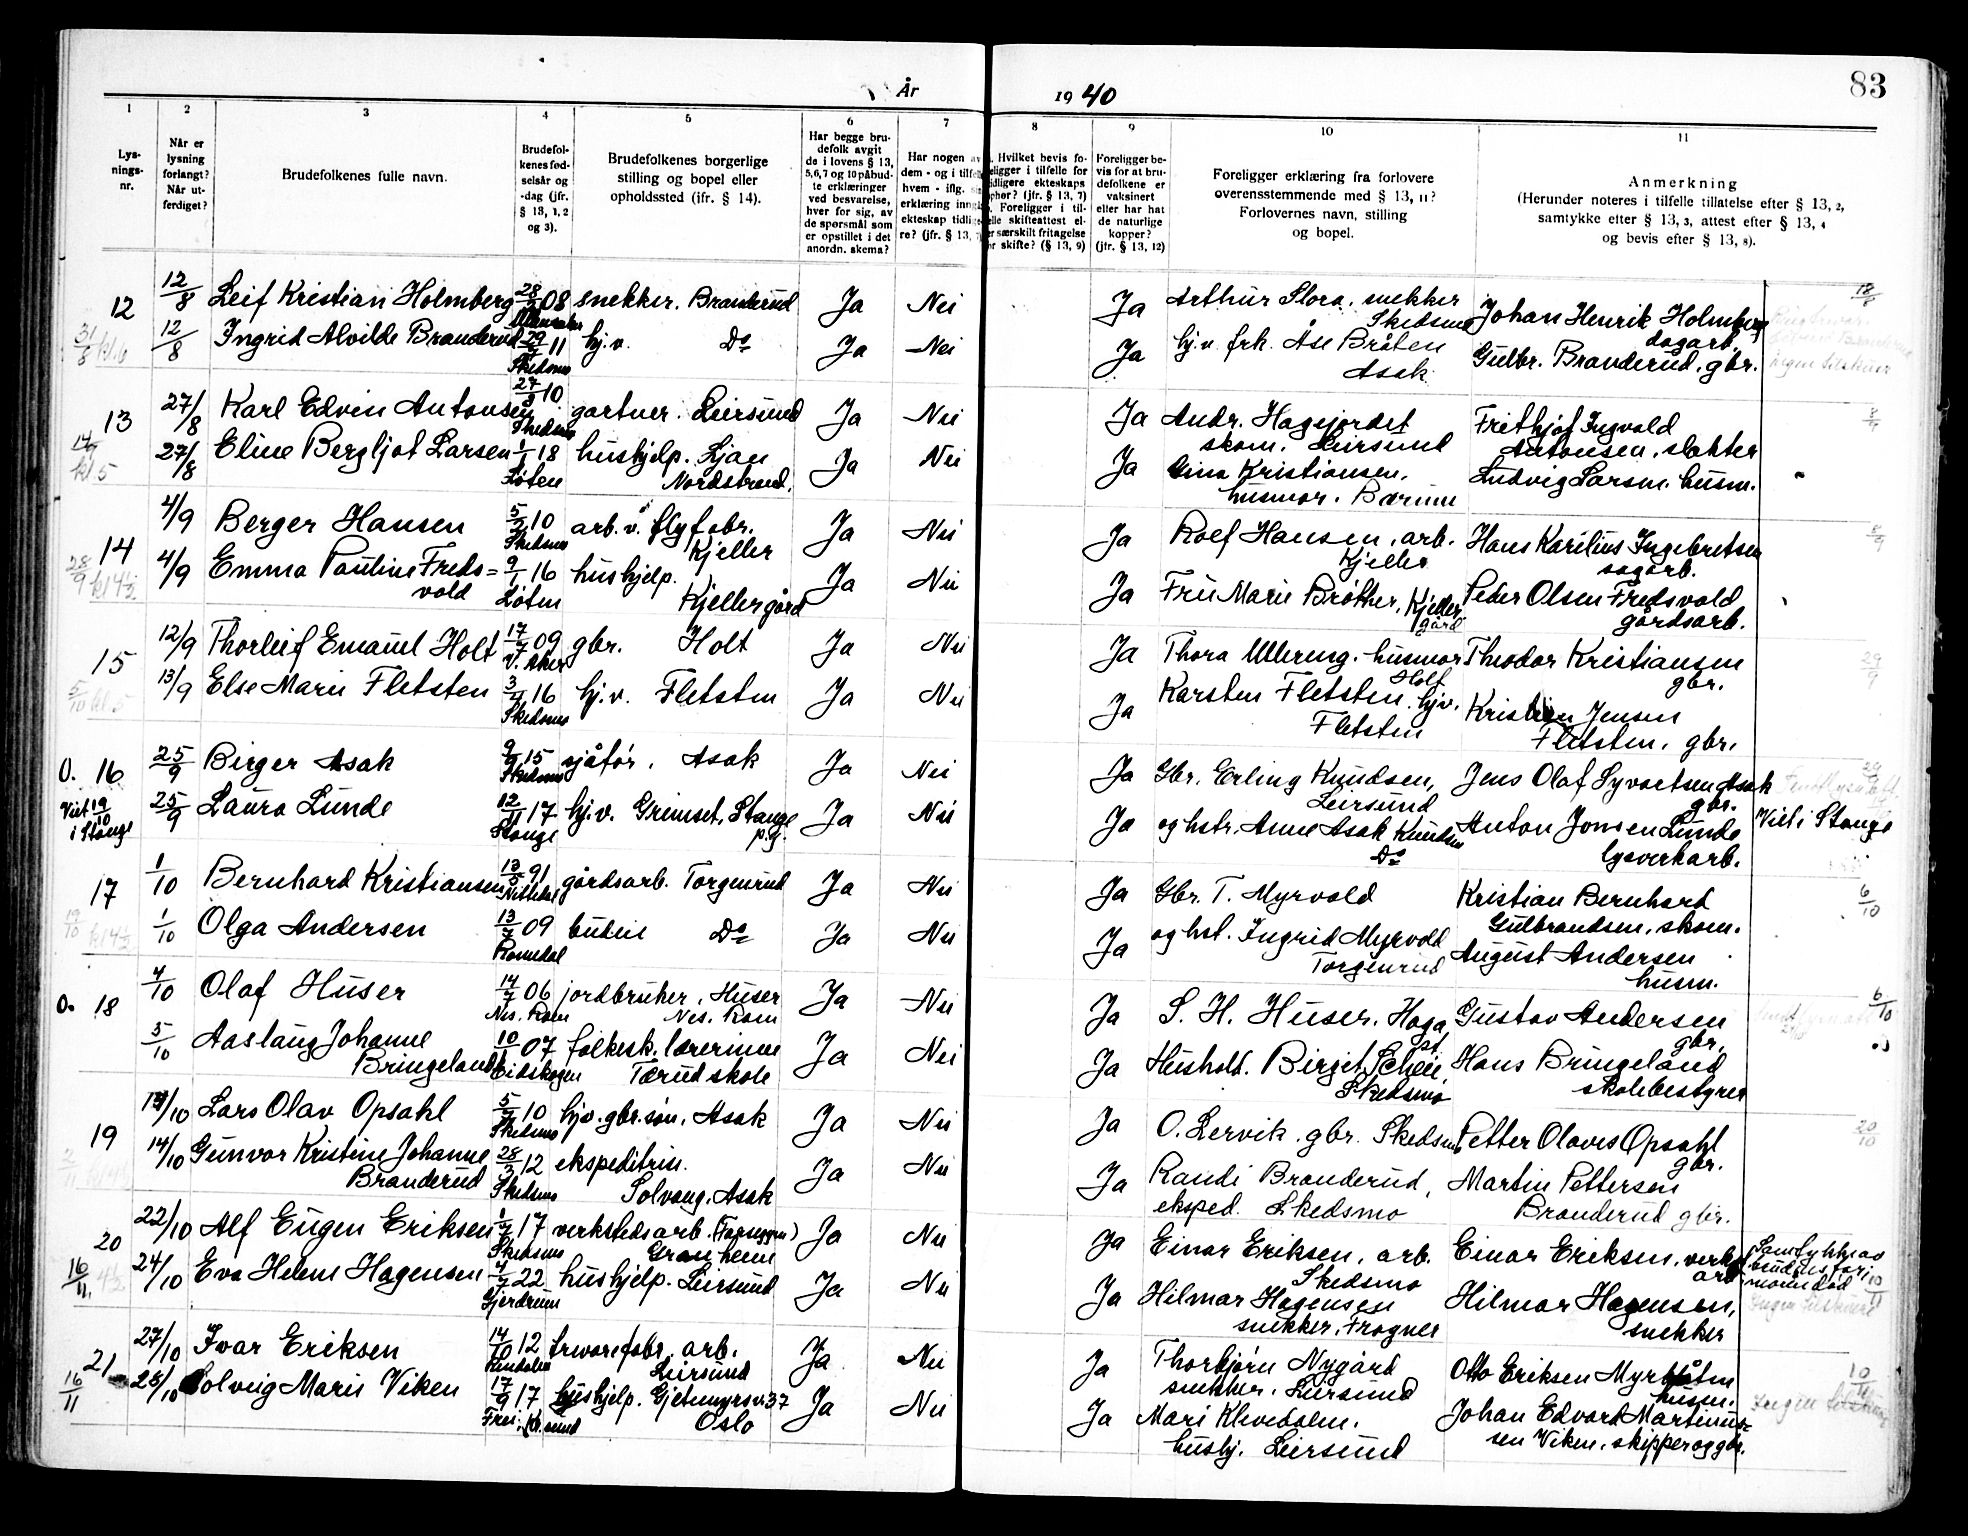 83
År 1940
1 2 3 4 5 6 7 8 9 10 11
Lysningsnr.
Når er lysning forlangt? Når utferdiget?
Brudefolkenes fulle navn.
Brudefolkenes fødselsår og -dag (jfr. § 13, 1, 2 og 3).
Brudefolkenes borgerlige stilling og bopel eller opholdssted (jfr. § 14).
Har begge brudefolk avgit de i lovens § 13, 5,6,7 og 10 påbudte erklæringer ved besvarelse, hver for sig, av de spørsmål som er opstillet i det anordn. skema?
Har nogen av dem - og i tilfelle hvem - iflg.
erklæring inngått ekteskap tidligere? (jfr. § 13,
Hvilket bevis foreligger i tilfelle for tidligere ekteskaps ophør? (jfr. § 13, 7) Foreligger i tilfelle skifteattest eller særskilt fritagelse for skifte? (§ 13, 9)
Foreligger bevis for at brudefolkene er vaksinert eller har hat de naturlige kopper? (jfr. § 13, 12)
Foreligger erklæring fra forlovere overensstemmende med § 13, 11? Forlovernes navn, stilling og bopel.
Anmerkning
(Herunder noteres i tilfelle tillatelse efter § 13, 2, samtykke efter § 13, 3, attest efter § 13, 4 og bevis efter § 13, 8).
12 12/8 Leif Kristian Holmberg 08 snekker. Branderud Ja Nei Ja Arthur Flora. snekker Skedsmo Johan Henrik Holmberg dagarb.
31/8 kl. 6 12/8 Ingrid Alvilde Branderud 11 Skedsmo hj.v. Do Ja Nei Ja hj.v. frk. Åse Bråten Asak Gulbr. Branderud, gbr.
13 27/8 Karl Edvin Antonsen 10 Skedsmo gartner. Leirsund Ja Nei Ja Andr. Hagejordet skom. Leirsund Frithjof Ingvold Antonsen, slakter
14/9 kl 5 27/8 Eline Bergljot Larsen 1/1 18 Løten hushjelp. Ljan Nordstrand. Ja Nei Ja Gina Kristiansen, husmor. Bærum Ludvig Larsen, husm.
14 4/9 Berger Hansen 5/2 10 Skedsmo arb. v. flyfabr. Kjeller Ja Nei Ja Rolf Hansen, arb. Kjeller Hans Karelius Ingebretsen sagarb.
28/9 kl 4½ 4/9 Emma Pauline Fredsvold 9/1 16 Løten hushjelp. Kjeller gård Ja Nei Ja Fru Marie Bråthen, Kjeller gård Peder Olsen Fredsvold gårdsarb.
15 12/9 Thorleif Emanuel Holt 17/7 09 V. Aker gbr. Holt Ja Nei Ja Thora Ullereng. husmor Holt Theodor Kristiansen gbr. 29/9
5/10 kl. 5 13/9 Else Marie Fletsten 16 Skedsmo hj.v. Fletsten Ja Nei Ja Karsten Fletsten. hjv. Fletsten Kristian Jensen Fletsten, gbr.
O. 16 25/9 Birger Asak 9/9 15 Skedsmo sjåfør. Asak Ja Nei Ja Gbr. Erling Knudsen, Leirsund Jens Olaf Syvertsen Asak gbr.
Viet 19/10 i Stange 25/9 Laura Lunde 12/11 17 Stange hj.v. Grimset, Stange p.g. Ja Nei Ja og hstr. Anne Asak Knudsen Do Anton Jonsen Lunde lysverkarb. Viet i Stange
17 1/10 Bernhard Kristiansen 91 Nittedal gårdsarb. Torgenrud Ja Nei Ja Gbr. T. Myrvold Kristian Bernhard Gulbrandsen, skom. 6/10
19/10 kl 4½ 1/10 Olga Andersen 13/7 09 Romedal budeie Do Ja Nei Ja og hst. Ingrid Myrvold Torgenrud August Andersen husm.
O. 18 4/10 Olaf Huser 14/7 06 Nes. Rom jordbruker, Huser Nes. Rom Ja Nei Ja S. H. Huser. Haga st. Gustav Andersen gbr. 6/10
5/10 Aaslaug Johanne Bringeland 10/10 07 Eidskogen folkesk. lærerinne Tærud skole Ja Nei Ja Hushold. Birgit Scheie Skedsmo Hans Bringeland skolebestyrer
19 14/10 Lars Olav Opsahl 10 Skedsmo hjv. gbr. søn, Asak Ja Nei Ja O. Lervik. gbr. Skedsmo Petter Olaves Opsahl gbr. 20/10
14/10 Gunvor Kristine Johanne Branderud 28/3 12 Skedsmo ekspeditrise. Solvang, Asak Ja Nei Ja Randi Branderud, eksped. Skedsmo Martin Pettersen Branderud gbr.
20 22/10 Alf Eugen Eriksen 17 Skedsmo verkstedsarb. Granheim Ja Nei Ja Einar Eriksen, arb. Skedsmo Einar Eriksen, verkst. arb. Samtykke av brudens far; moren død
16/11 4½ 24/10 Eva Helene Hagensen 4/7 22 Gjerdrum hushjelp. Leirsund Ja Nei Ja Hilmar Hagensen snekker, Frogner Hilmar Hagensen, snekker
21 27/10 Ivar Eriksen 14/10 12 Rendalen trevarefabr. arb. Leirsund Ja Nei Ja Thorbjørn Nygård snekker. Leirsund Otto Eriksen Myrbråten husm.
16/11 28/10 Solveig Marie Viken 17/9 17 hushjelp. Gjetmyrsv. 37 Oslo Ja Nei Ja Mari Klevedalen. hushj. Leirsund Johan Edvard Martinussen Viken. skipper og gbr. Ingen